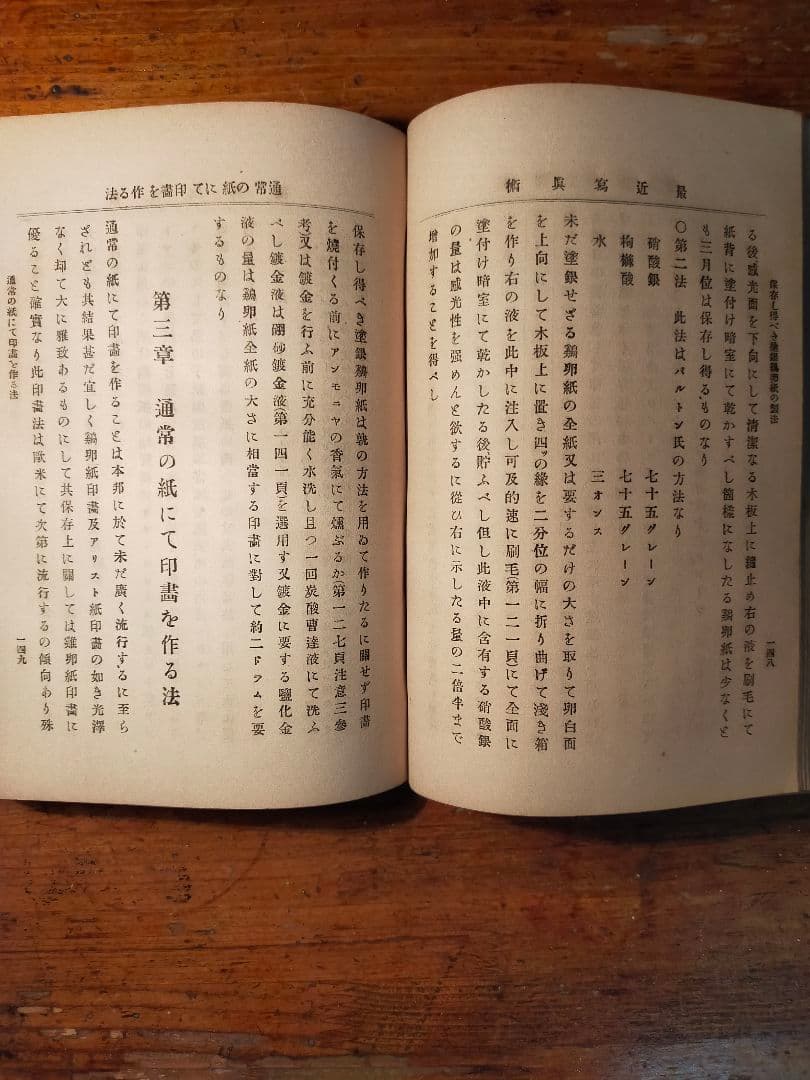 最近寫眞術
保存し得べき塗銀鷄卵紙の製法
一四八
る後感光面を下向にして清潔なる木板上に鋲止め右の液を刷毛にて
紙背に塗付け暗室にて乾かすべし箇樣になしたる鷄卵紙は少なくと
も三月位は保存し得るものなり
〇第二法 此法はバルトン氏の方法なり
硝酸銀 七十五グレーン
枸櫞酸 七十五グレーン
水 三オンス
未だ塗銀せざる鷄卵紙の全紙又は要するだけの大さを取りて卵白面
を上向にして木板上に置き四ッの緣を二分位の幅に折り曲げて淺き箱
を作り右の液を此中に注入し可及的速に刷毛(第一二一頁)にて全面に
塗付け暗室にて乾かしたる後貯ふべし但し此液中に含有する硝酸銀
の量は感光性を强めんと欲するに從ひ右に示したる量の二倍半まで
增加することを得べし
通常の紙にて印畫を作る法
保存し得べき塗銀鷄卵紙は孰の方法を用ゐて作りたるに關せず印畫
を燒付くる前にアンモニヤの香氣にて燻ぶるか(第一二七頁注意三參
考)又は鍍金を行ふ前に充分能く水洗し且つ一回炭酸曹達液にて洗ふ
べし鍍金液は硼砂鍍金液(第一四一頁)を選用す又鍍金に要する鹽化金
液の量は鷄卵紙全紙の大さに相當する印畫に對して約二ドラムを要
するものなり
第三章 通常の紙にて印畫を作る法
通常の紙にて印畫を作ることは本邦に於て未だ廣く流行するに至ら
ざれども其結果甚だ宜しく鷄卵紙印畫及アリスト紙印畫の如き光澤
なく却て大に雅致あるものにして其保存上に關しては雞卵紙印畫に
優ること確實なり此印畫法は歐米にて次第に流行するの傾向あり殊
通常の紙にて印畫を作る法
一四九